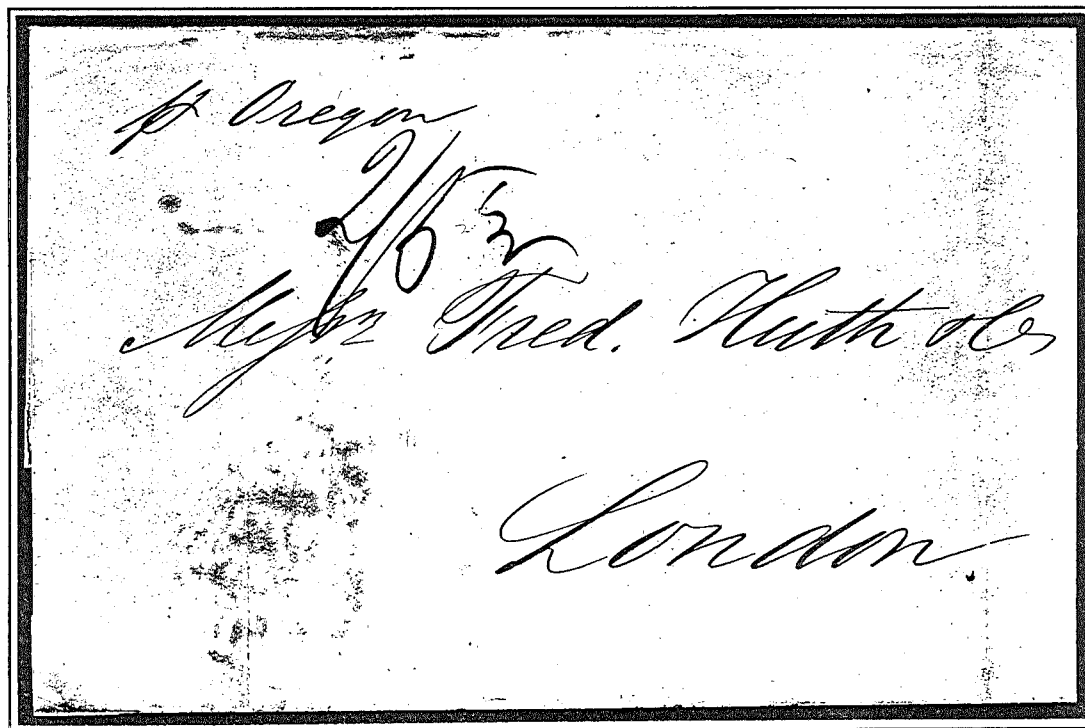 pr Oregon
2/5 ½
Messrs Fred. Huth & Co
London.